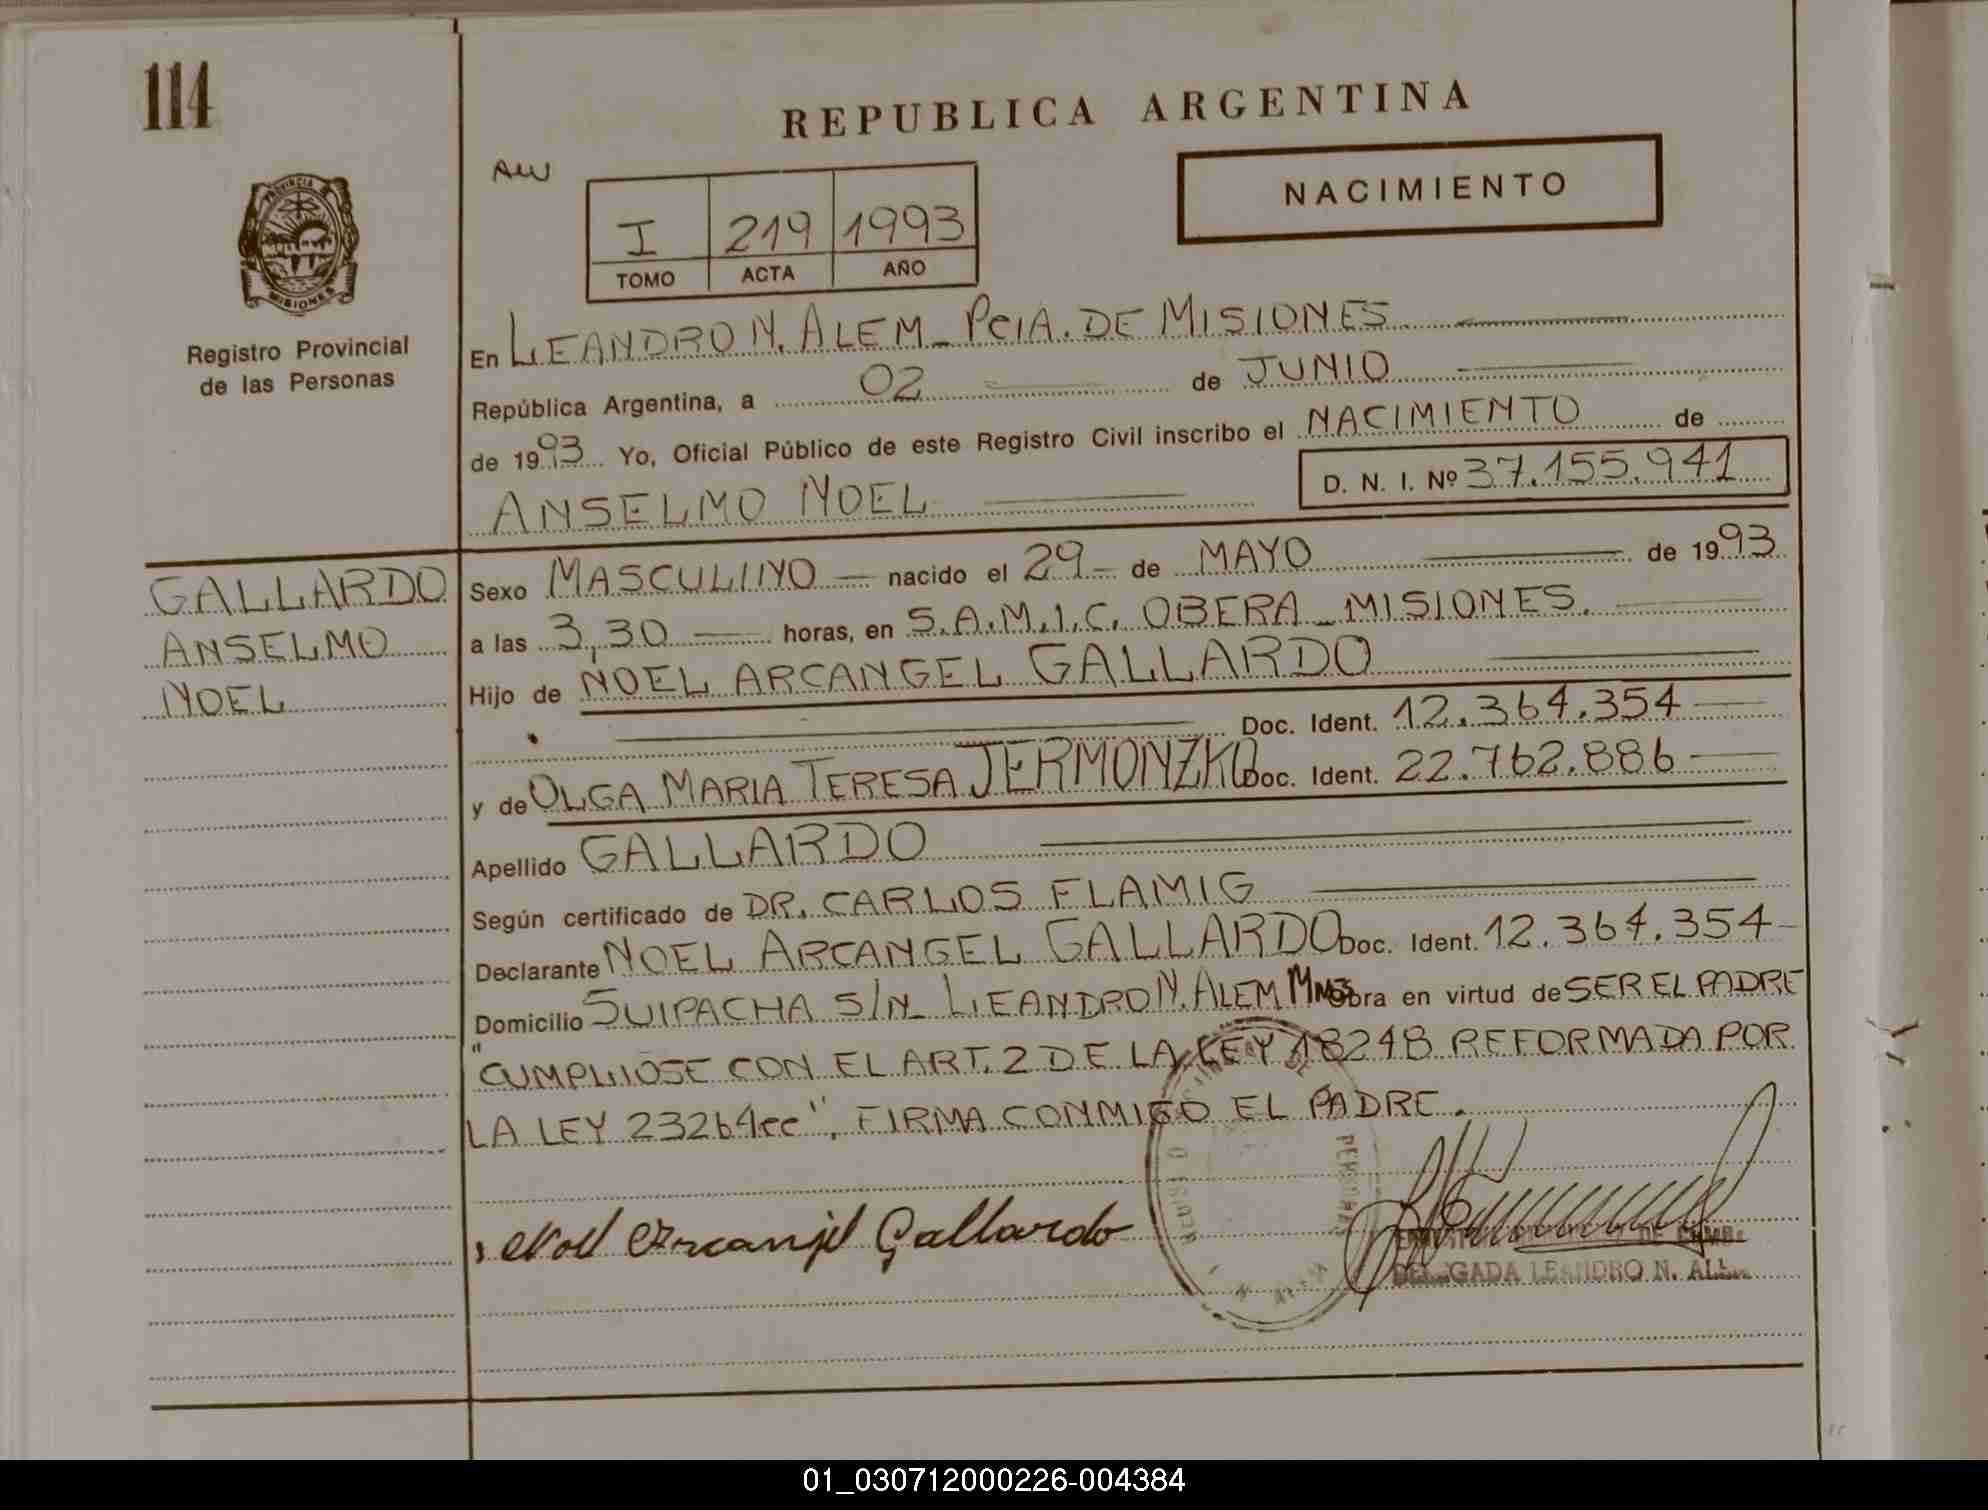 114
REPUBLICA ARGENTINA
NACIMIENTO
I 219 1993
TOMO ACTA AÑO
PROVINCIA DE
MISIONES
Registro Provincial
de las Personas
En LEANDRO N. ALEM - PCIA. DE MISIONES.
República Argentina, a 02 de JUNIO
de 1993 Yo, Oficial Público de este Registro Civil inscribo el NACIMIENTO de
ANSELMO NOEL D. N. I. Nº 37.155.941
GALLARDO
ANSELMO
NOEL
Sexo MASCULINO nacido el 29 de MAYO de 1993
a las 3,30 horas, en S.A.M.I.C. OBERA - MISIONES.
Hijo de NOEL ARCANGEL GALLARDO
Doc. Ident. 12.364.354
y de OLGA MARIA TERESA JERMONZKO Doc. Ident. 22.762.886
Apellido GALLARDO
Según certificado de DR. CARLOS FLAMIG
Declarante NOEL ARCANGEL GALLARDO Doc. Ident. 12.364.354
Domicilio SUIPACHA S/N - LEANDRO N. ALEM Mnes Obra en virtud de SER EL PADRE
"CUMPLIOSE CON EL ART. 2 DE LA LEY 18248 REFORMADA POR
LA LEY 23264cc". FIRMA CONMIGO EL PADRE.
Noel Arcangel Gallardo
LEANDRO N.
01_030712000226-004384